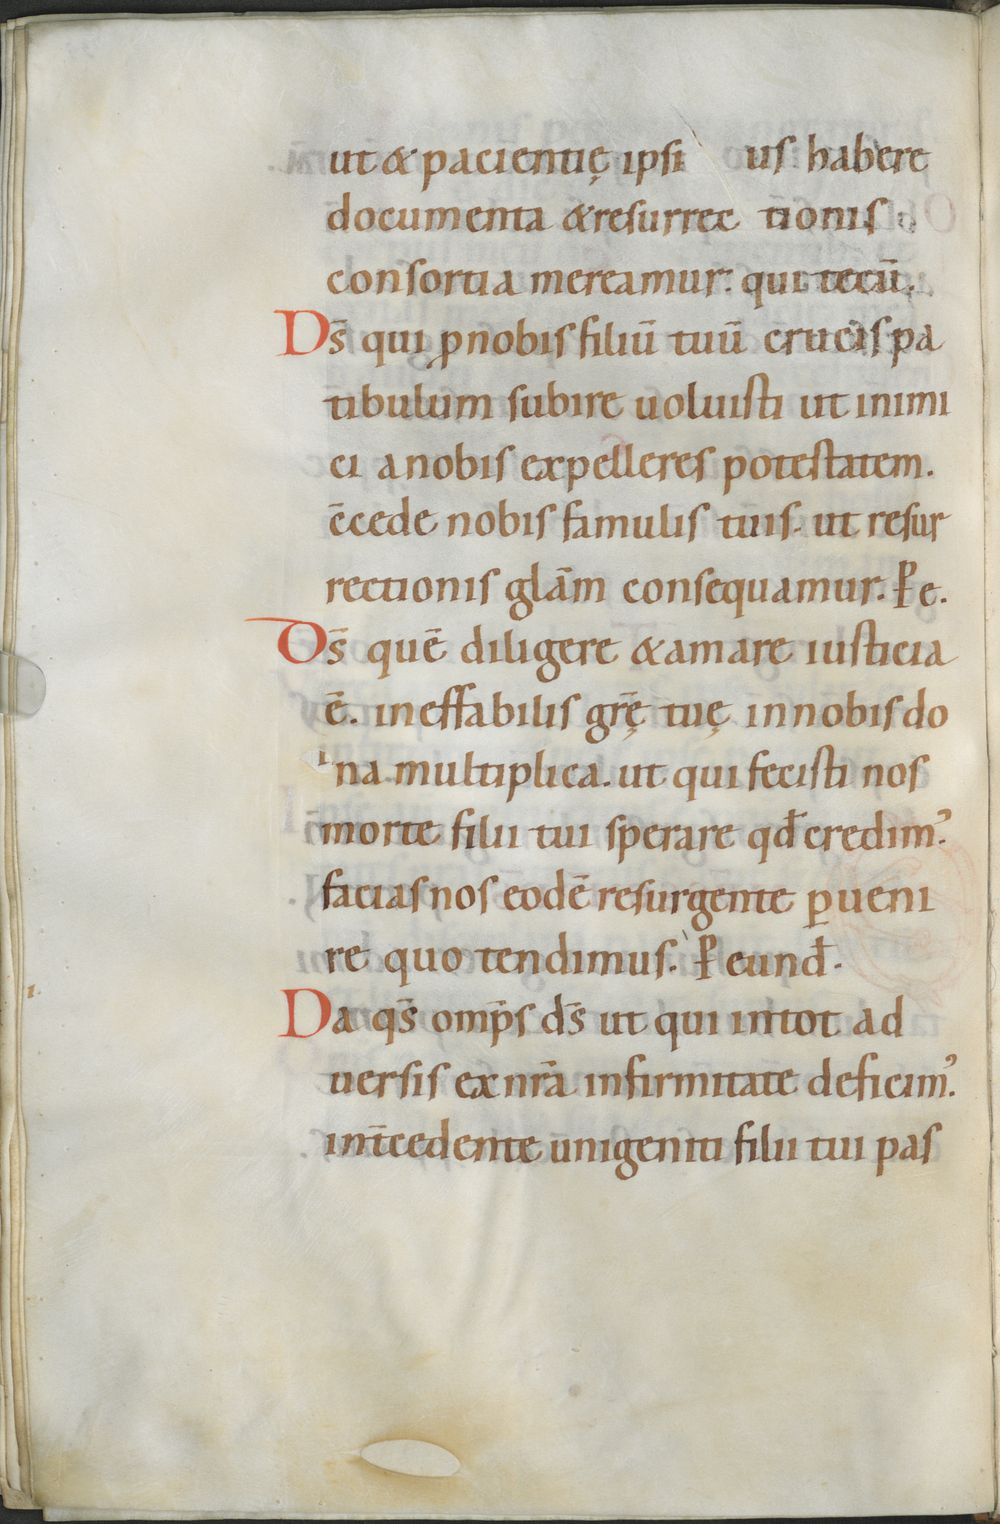 ut & pacientię ipsi us habere
documenta & resurrec tionis
consortia mereamur. qui tecū.
Ds̄ qui ꝓ nobis filiū tuū crucis pa
tibulum subire uoluisti ut inimi
ci a nobis expelleres potestatem.
c̄cede nobis famulis tuis. ut resur
rectionis glām consequamur. ꝑ e.
Ds̄ quē diligere & amare iusticia
ē. ineffabilis gr̄ę tuę in nobis do
na multiplica. ut qui fecisti nos
morte filii tui sperare qđ credimꝰ.
facias nos eodē resurgente ꝑueni
re quo tendimus. ꝑ eunđ.
Da qs̄ omp̄s ds̄ ut qui in tot ad
uersis ex nrā infirmitate deficimꝰ.
int̄cedente unigeniti filii tui pas